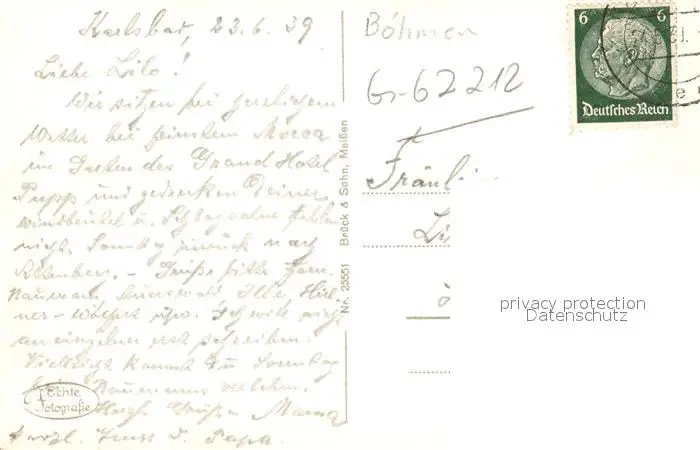 Karlsbad, 23.6.39
Liebe Lilo!
Wir sitzen bei herrlichem
Wetter bei feinstem Mocca
im Garten des Grand Hotel
Pupp und gedenken Deiner
Windbeutel u. Schlagsahne fehlen
nicht. Sonntag zurück nach
Altenberg. - Grüße bitte
Naumann, Auerswald, Ilse,
usw. Ich will nicht
erst schreiben.
Vielleicht kannst Du Sonntag
Naumanns
Herzl. Grüße Mama
Herzl. Gruss v. Papa.
Echte
Fotografie
Nr. 25551 Brück & Sohn, Meißen
Böhmen
Gr-62212
6 6
Deutsches Reich
Fräul
privacy protection
Datenschutz